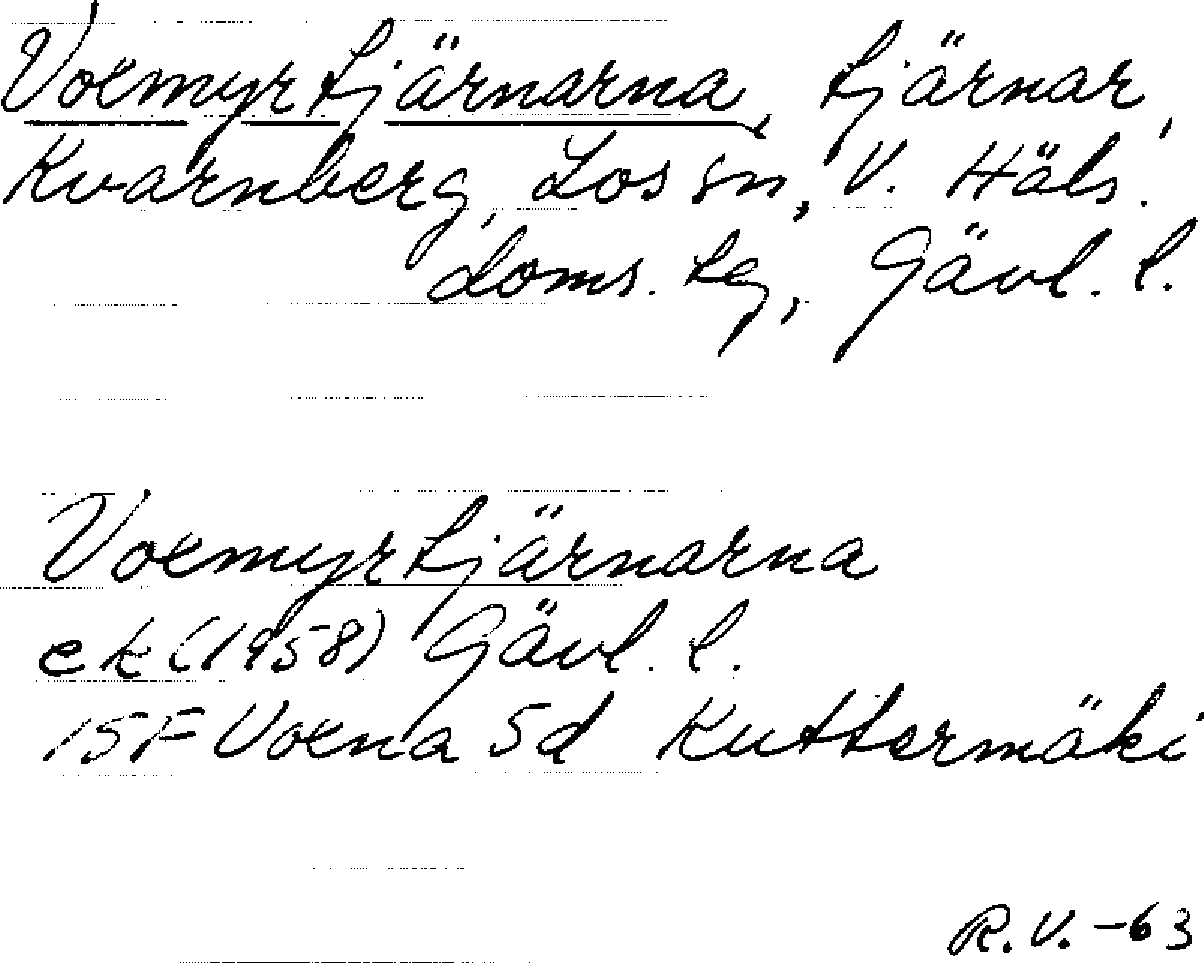 Voxmyrtjärnarna, tjärnar,
Kvarnberg, Los sn, V. Häls.
doms. tg, Gävl. l.
Voxmyrtjärnarna
ek (1958) Gävl. l.
15F Voxna 5d Kuttermäki
R.V. -63